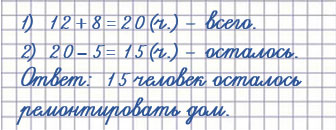 1) 12+8=20(ч.) – всего.
2) 20–5=15(ч.) – осталось.
Ответ: 15 человек осталось
ремонтировать дом.